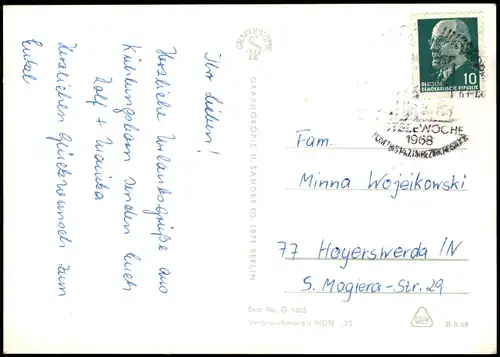 Ihr Lieben!
Herzliche Urlaubsgrüße aus
Kühlungsborn senden Euch
Rolf + Monika
Herzlichen Glückwunsch zum
Enkel
GRAPHOKOPIE
GRAPHOKOPIE H. SANDER KG, 1071 BERLIN
10
DEUTSCHE
DEMOKRATISCHE REPUBLIK
1968
Fam.
Minna Wojeikowski
77 Hoyerswerda /N
S. Magiera-Str. 29
Best. Nr. G 1805
Verbraucherpreis MDN -,25
B 8/68